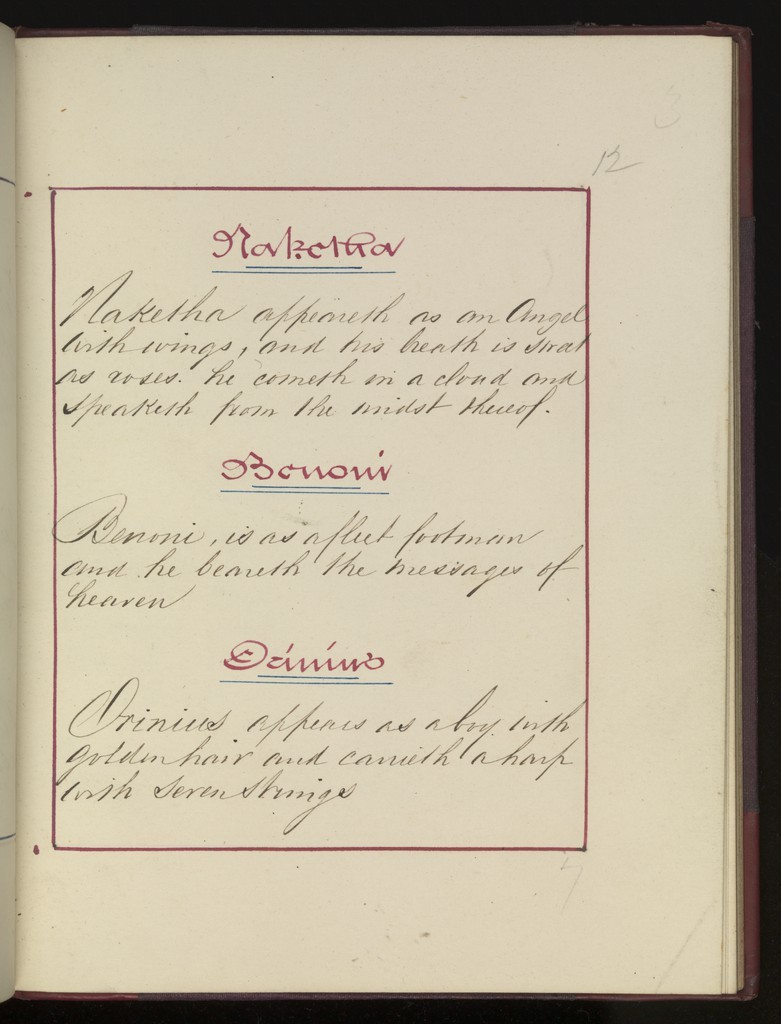 3
12
Naketha
Naketha appeareth as an Angel
with wings, and his breath is sweet
as roses. he cometh in a cloud and
speaketh from the midst thereof.
Benoni
Benoni, is as a fleet footman
and he beareth the messages of
heaven
Orinius
Orinius appears as a boy with
golden hair and carrieth a harp
with seven strings
7